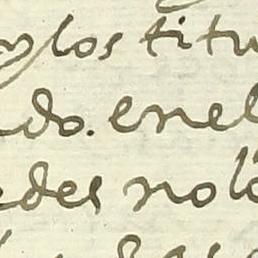 y los titu
do. enel
des no lo